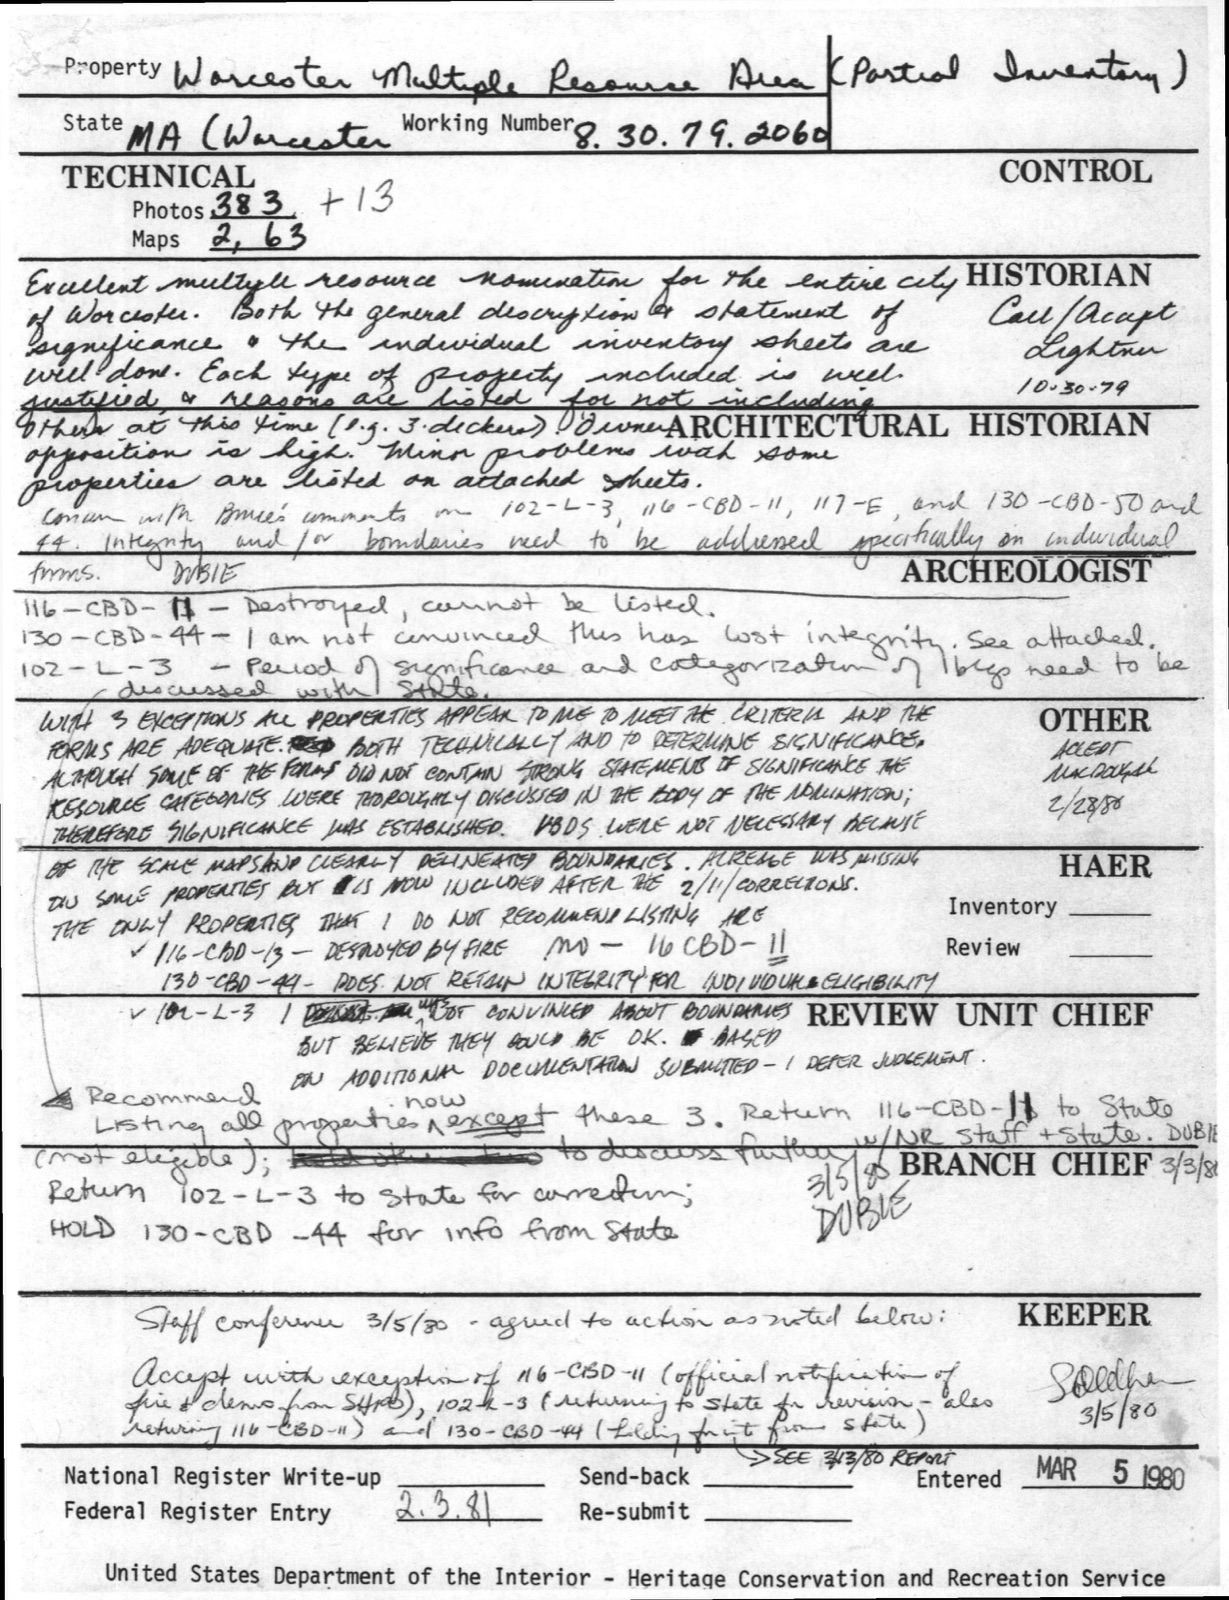 Property Worcester Multiple Resource Area (Partial Inventory)
State MA (Worcester Working Number 8.30.79.2060
TECHNICAL CONTROL
Photos 383 + 13
Maps 2, 63
Excellent multiple resource nomination for the entire city HISTORIAN
of Worcester. Both the general description & statement of Call/Accept
significance & the individual inventory sheets are Lightner
well done. Each type of property included is well 10.30.79
justified & reasons are listed for not including
others at this time (e.g. 3-deckers). Owner ARCHITECTURAL HISTORIAN
opposition is high. Minor problems with some
properties are listed on attached sheets.
Concur with Bruce's comments on 102-L-3, 116-CBD-11, 117-E, and 130-CBD-50 and
44. Integrity and/or boundaries need to be addressed specifically on individual
forms. DUBIE ARCHEOLOGIST
116-CBD-11 - Destroyed, cannot be listed.
130-CBD-44 - I am not convinced this has lost integrity. See attached.
102-L-3 - Period of significance and categorization of bldgs need to be
discussed with State.
WITH 3 EXCEPTIONS ALL PROPERTIES APPEAR TO ME TO MEET THE CRITERIA AND THE OTHER
FORMS ARE ADEQUATE BOTH TECHNICALLY AND TO DETERMINE SIGNIFICANCE. ACCEPT
ALTHOUGH SOME OF THE FORMS DID NOT CONTAIN STRONG STATEMENTS OF SIGNIFICANCE THE MACDOUGAL
RESOURCE CATEGORIES WERE THOROUGHLY DISCUSSED IN THE BODY OF THE NOMINATION; 2/28/80
THEREFORE SIGNIFICANCE WAS ESTABLISHED. VBDS WERE NOT NECESSARY BECAUSE
OF THE SCALE MAPS AND CLEARLY DELINEATED BOUNDARIES. ACREAGE WAS MISSING HAER
ON SOME PROPERTIES BUT IS NOW INCLUDED AFTER THE 2/11/ CORRECTIONS.
THE ONLY PROPERTIES THAT I DO NOT RECOMMEND LISTING ARE Inventory
✓ 116-CBD-13 - DESTROYED BY FIRE NO - 116 CBD-11 Review
130-CBD-44 - DOES NOT RETAIN INTEGRITY FOR INDIVIDUAL ELIGIBILITY
✓ 102-L-3 I WAS NOT CONVINCED ABOUT BOUNDARIES REVIEW UNIT CHIEF
BUT BELIEVE THEY COULD BE OK. BASED
ON ADDITIONAL DOCUMENTATION SUBMITTED - I DEFER JUDGEMENT.
Recommend
Listing all properties now except these 3. Return 116-CBD-11 to State
(not eligible); to discuss further w/NR staff + State. DUBIE
BRANCH CHIEF 3/3/80
Return 102-L-3 to State for correction; 3/5/80
HOLD 130-CBD-44 for info from State DUBIE
Staff conference 3/5/80 - agreed to action as noted below: KEEPER
Accept with exception of 116-CBD-11 (official notification of
fire & demo from SHPO), 102-L-3 (returning to State for revision - also 3/5/80
returning 116-CBD-11) and 130-CBD-44 (holding for info from State)
SEE 3/13/80 REPORT
National Register Write-up Send-back Entered MAR 5 1980
Federal Register Entry 2.3.81 Re-submit
United States Department of the Interior - Heritage Conservation and Recreation Service